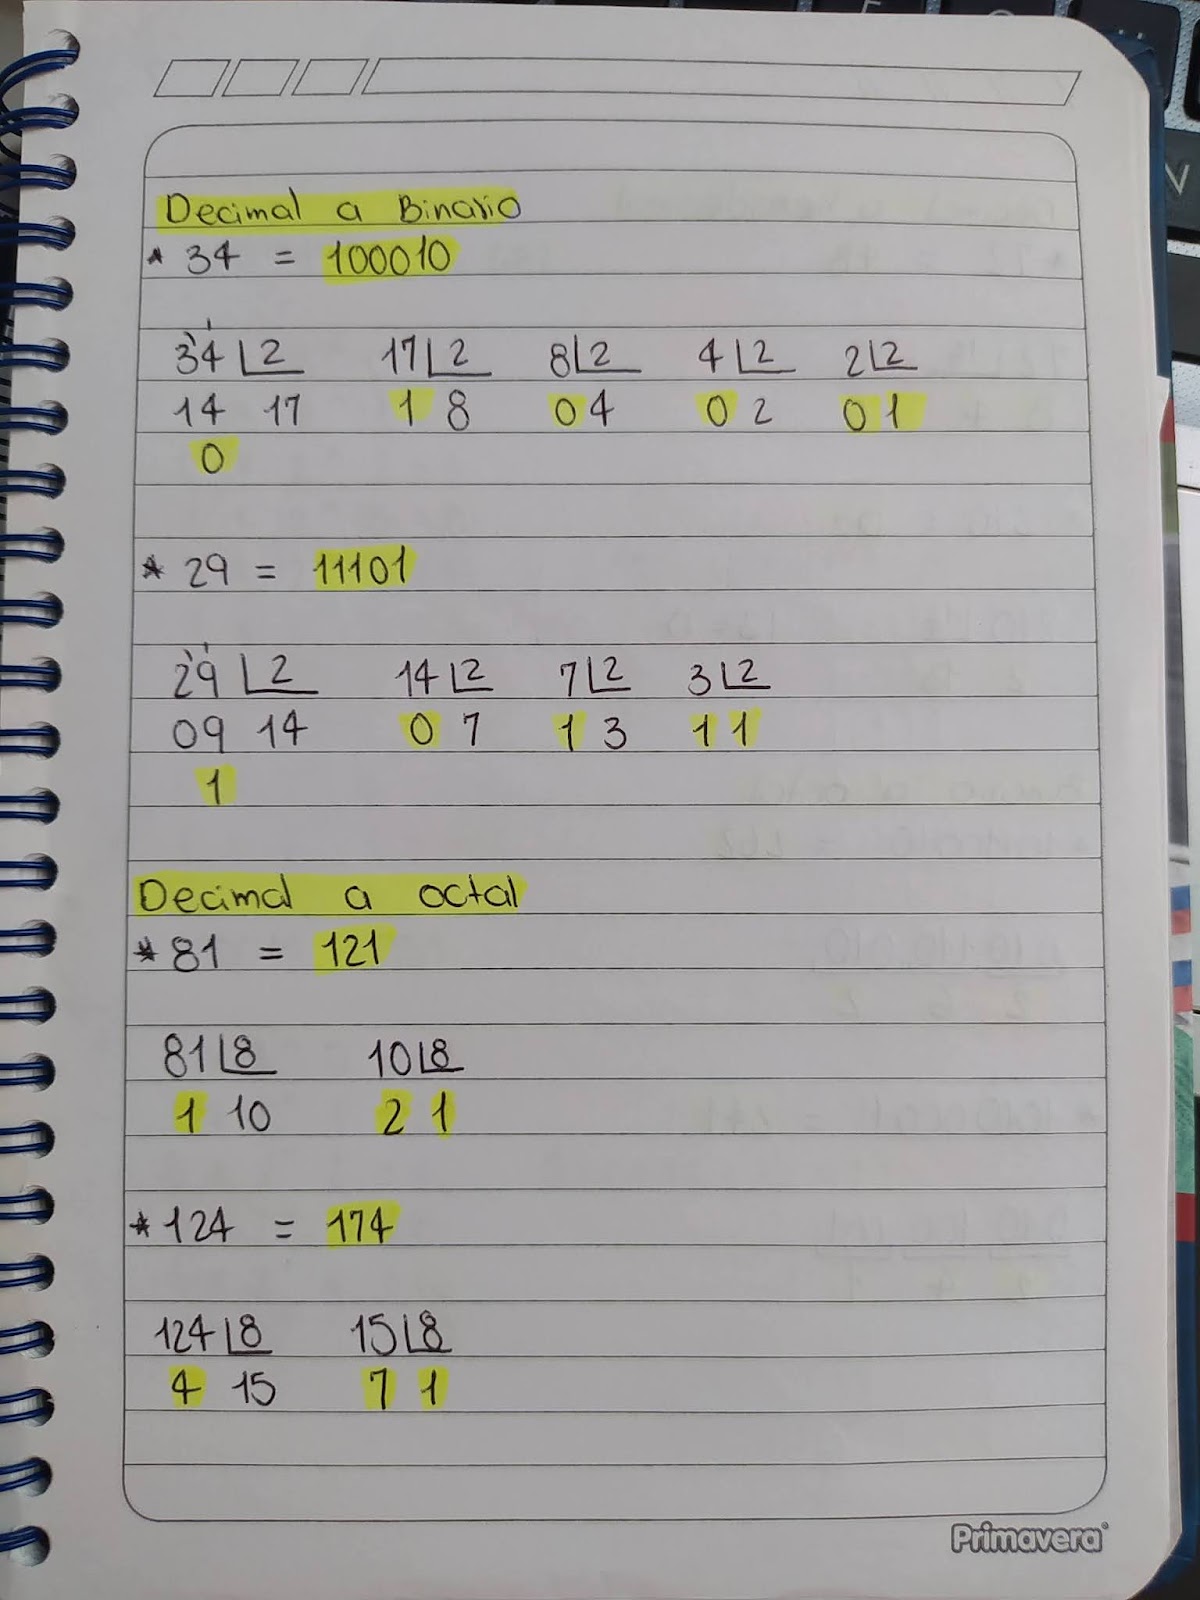 Decimal a Binario
* 34 = 100010
34 2 17 2 8 2 4 2 2 2
14 17 1 8 0 4 0 2 0 1
0
* 29 = 11101
29 2 14 2 7 2 3 2
09 14 0 7 1 3 1 1
1
Decimal a octal
* 81 = 121
81 8 10 8
1 10 2 1
* 124 = 174
124 8 15 8
4 15 7 1
Primavera